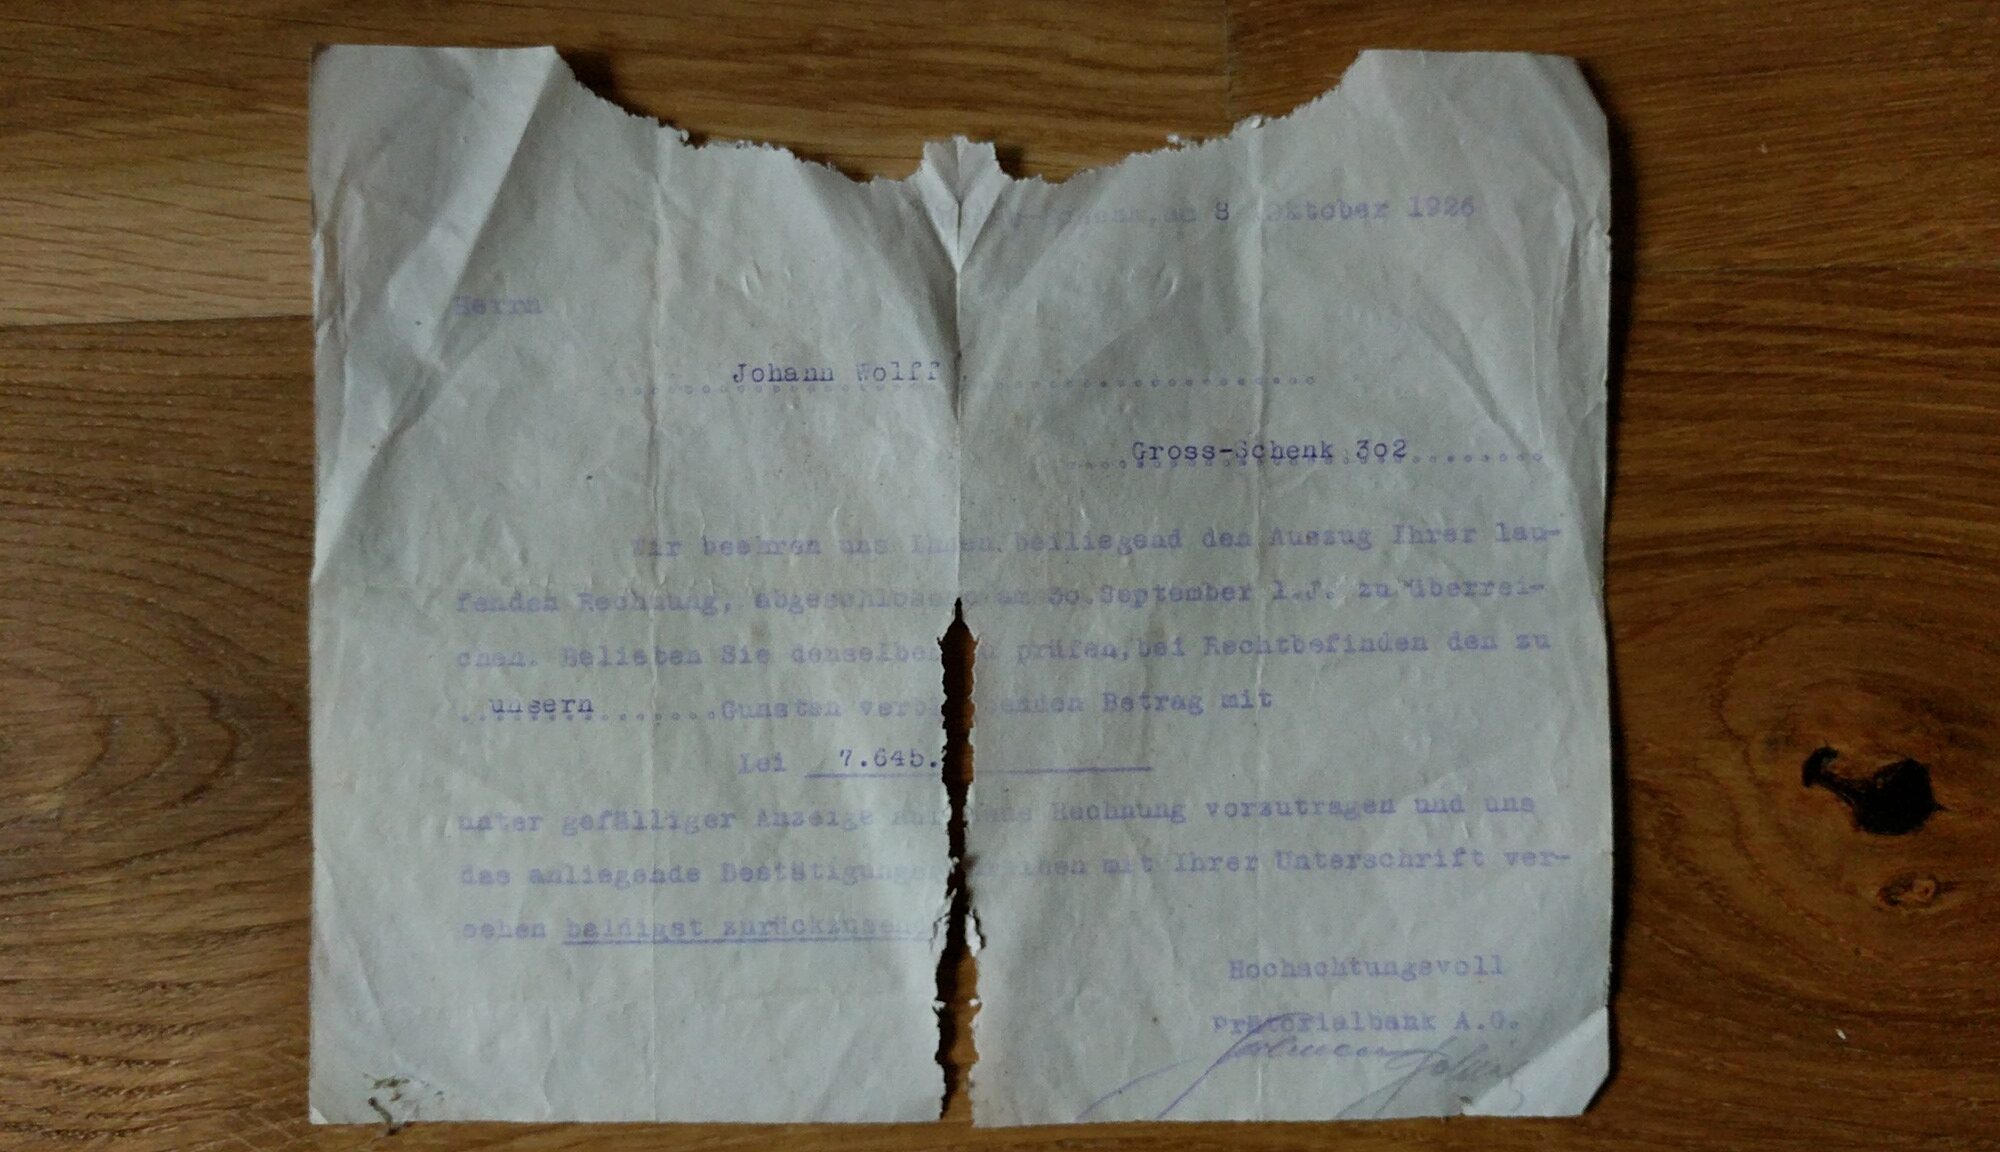 am 8. Oktober 1926
Herrn
Johann Wolff
Gross-Schenk 302
Wir beehren uns Ihnen beiliegend den Auszug Ihrer lau-
fenden Rechnung, abgeschlossen am 30.September l.J. zu überrei-
chen. Belieben Sie denselben zu prüfen, bei Rechtbefinden den zu
unsern Gunsten Betrag mit
Lei 7.645.
unter gefälliger Anzeige auf Rechnung vorzutragen und uns
das anliegende mit Ihrer Unterschrift ver-
sehen baldigst
Hochachtungsvoll
Prätorialbank A.G.